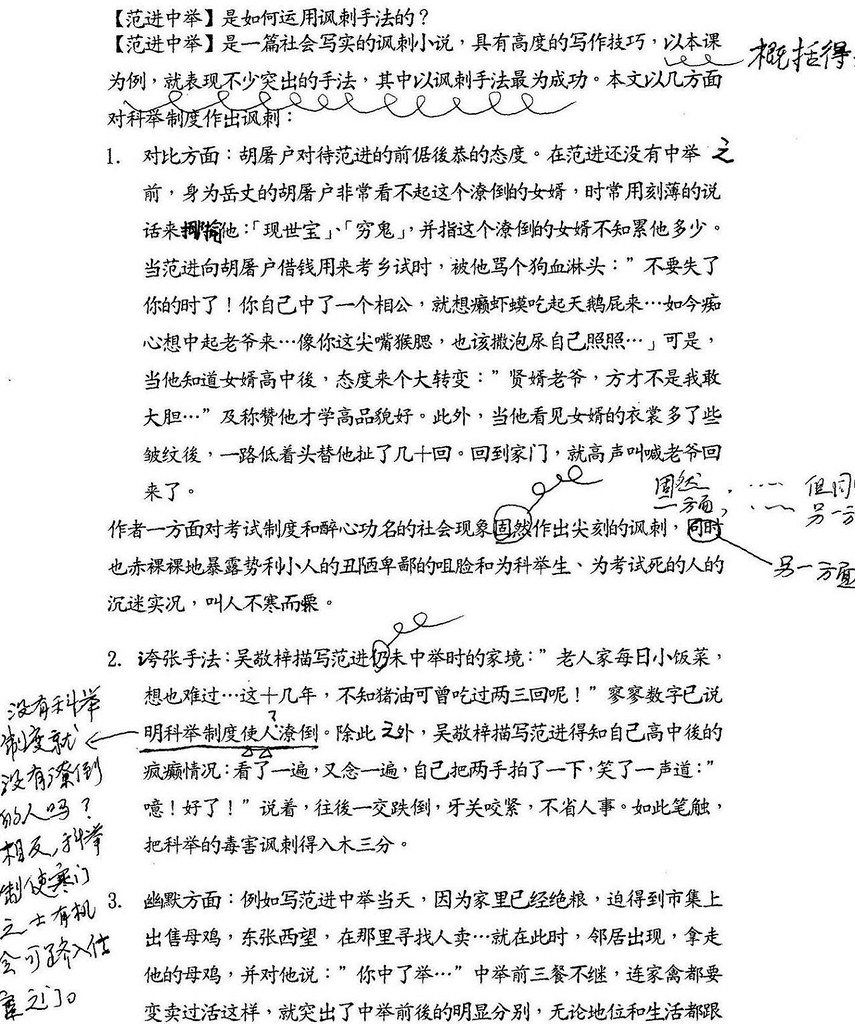 【范进中举】是如何运用讽刺手法的？
【范进中举】是一篇社会写实的讽刺小说，具有高度的写作技巧，以本课
概括得
为例，就表现不少突出的手法，其中以讽刺手法最为成功。本文以几方面
对科举制度作出讽刺：
1. 对比方面：胡屠户对待范进的前倨後恭的态度。在范进还没有中举 之
前，身为岳丈的胡屠户非常看不起这个潦倒的女婿，时常用刻薄的说
话来揶揄他：「现世宝」、「穷鬼」，并指这个潦倒的女婿不知累他多少。
当范进向胡屠户借钱用来考乡试时，被他骂个狗血淋头：”不要失了
你的时了！你自己中了一个相公，就想癞虾蟆吃起天鹅屁来…如今痴
心想中起老爷来…像你这尖嘴猴腮，也该撒泡尿自己照照…」可是，
当他知道女婿高中後，态度来个大转变：”贤婿老爷，方才不是我敢
大胆…”及称赞他才学高品貌好。此外，当他看见女婿的衣裳多了些
皱纹後，一路低着头替他扯了几十回。回到家门，就高声叫喊老爷回
来了。
固然，…… 但同
一方面，…… 另一方
作者一方面对考试制度和醉心功名的社会现象固然作出尖刻的讽刺，同时
也赤裸裸地暴露势利小人的丑陋卑鄙的咀脸和为科举生、为考试死的人的
另一方面
沉迷实况，叫人不寒而粟。
2. 夸张手法：吴敬梓描写范进仍未中举时的家境：”老人家每日小饭菜，
想也难过…这十几年，不知猪油可曾吃过两三回呢！”寥寥数字已说
明科举制度使人潦倒。除此 之外，吴敬梓描写范进得知自己高中後的
?
疯癫情况：看了一遍，又念一遍，自己把两手拍了一下，笑了一声道：”
噫！好了！”说着，往後一交跌倒，牙关咬紧，不省人事。如此笔触，
把科举的毒害讽刺得入木三分。
没有科举
制度就
没有潦倒
的人吗？
相反，科举
制使寒门
之士有机
会可跻入仕
宦之门。
3. 幽默方面：例如写范进中举当天，因为家里已经绝粮，迫得到市集上
出售母鸡，东张西望，在那里寻找人卖…就在此时，邻居出现，拿走
他的母鸡，并对他说：”你中了举…”中举前三餐不继，连家禽都要
变卖过活这样，就突出了中举前後的明显分别，无论地位和生活都跟